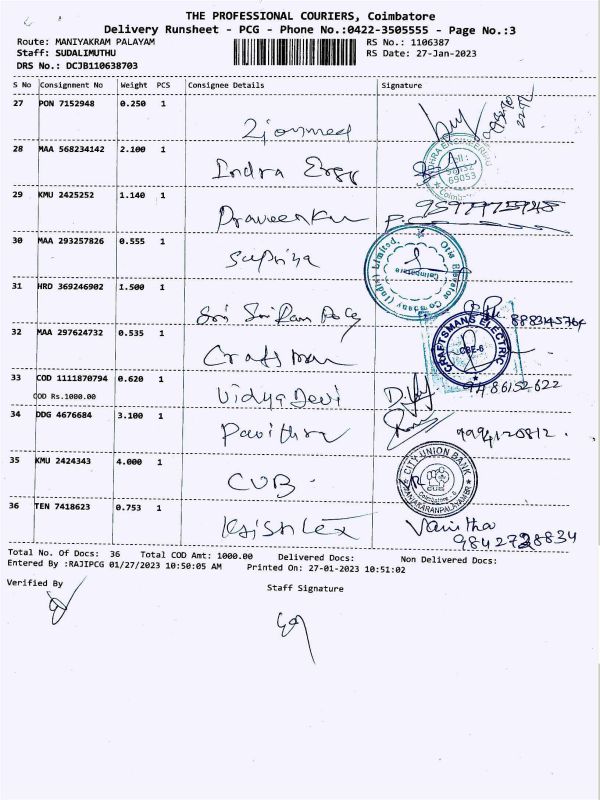 THE PROFESSIONAL COURIERS, Coimbatore
Delivery Runsheet - PCG - Phone No.:0422-3505555 - Page No.:3
Route: MANIYAKRAM PALAYAM
RS No.: 1106387
Staff: SUDALIMUTHU
RS Date: 27-Jan-2023
DRS No.: DCJB110638703
S No Consignment No Weight PCS Consignee Details Signature
27 PON 7152948 0.250 1
28 MAA 568234142 2.100 1
Indra Engg
29 KMU 2425252 1.140 1
Praveenku
30 MAA 293257826 0.555 1
Supriya
Otis Elevator Company (India) Limited.
Coimbatore
31 HRD 369246902 1.500 1
Sri Sri Ram
8883145764
32 MAA 297624732 0.535 1
Craftsman
CRAFTSMANS ELECTRIC
CBE-6
33 COD 1111870794 0.620 1
COD Rs.1000.00
Vidya Devi
9486152622
34 DDG 4676684 3.100 1
Pavithra
9994120812.
35 KMU 2424343 4.000 1
CUB
CITY UNION BANK
Coimbatore - 6
36 TEN 7418623 0.753 1
Vanitha
9842728834
Total No. Of Docs: 36 Total COD Amt: 1000.00 Delivered Docs: Non Delivered Docs:
Entered By :RAJIPCG 01/27/2023 10:50:05 AM Printed On: 27-01-2023 10:51:02
Verified By
Staff Signature